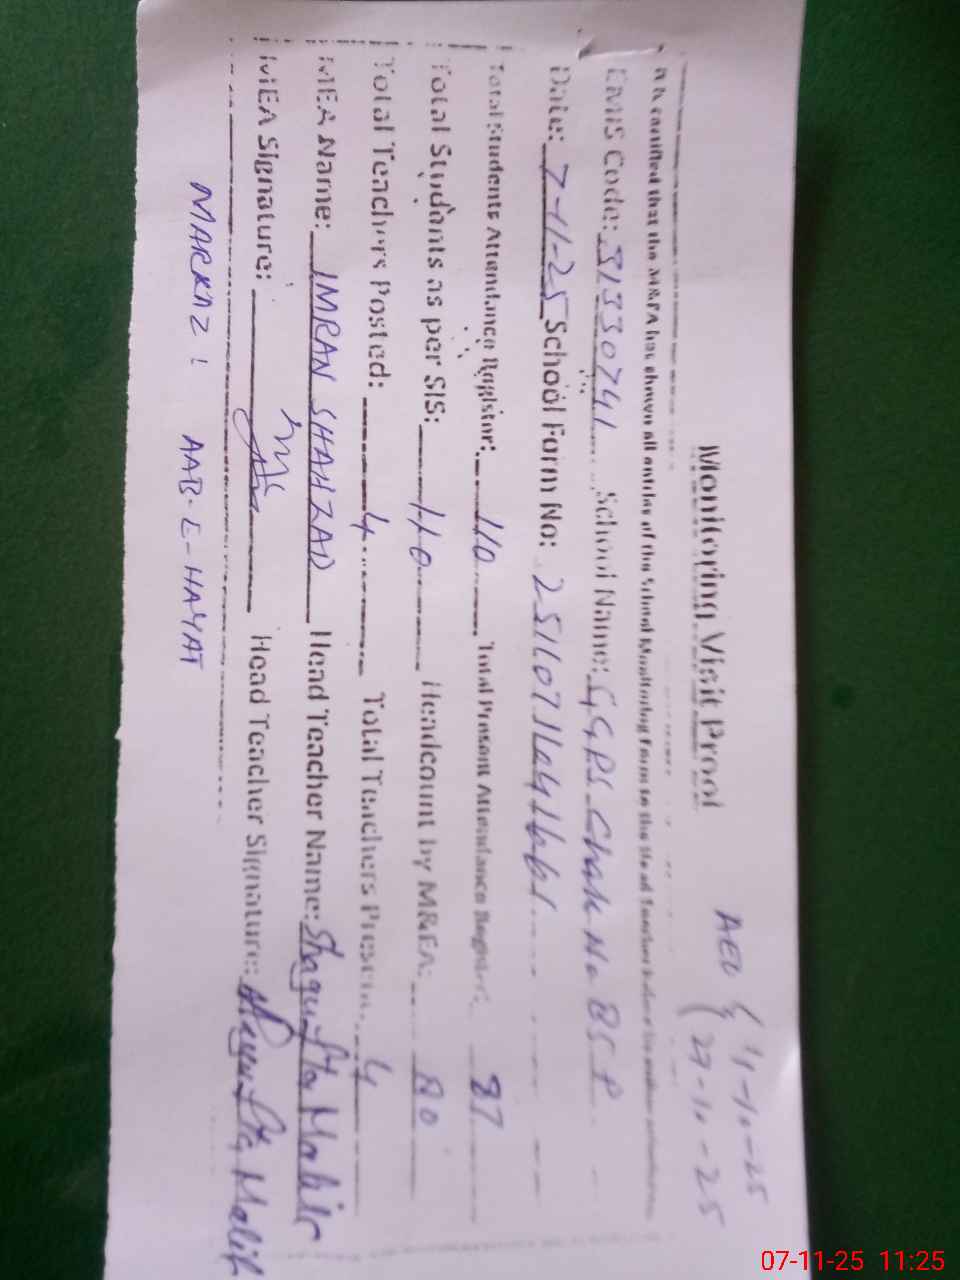 Monitoring Visit Proof
AEO { 11-10-25
27-10-25
It is certified that the M&EA has shown all entries of the School Monitoring Form to the Head Teacher before
EMIS Code: 31330741 School Name: GGPS Chak No 85 P
Date: 7-11-25 School Form No:
Total Students Attendance Register: 110 Total Present Attendance Register: 87
Total Students as per SIS: 110 Headcount by M&EA: 80
Total Teachers Posted: 4 Total Teachers Present: 4
MEA Name: IMRAN SHAHZAD Head Teacher Name: Shagufta Malik
MEA Signature: Head Teacher Signature: Shagufta Malik
MARKAZ : AAB-E-HAYAT
07-11-25 11:25